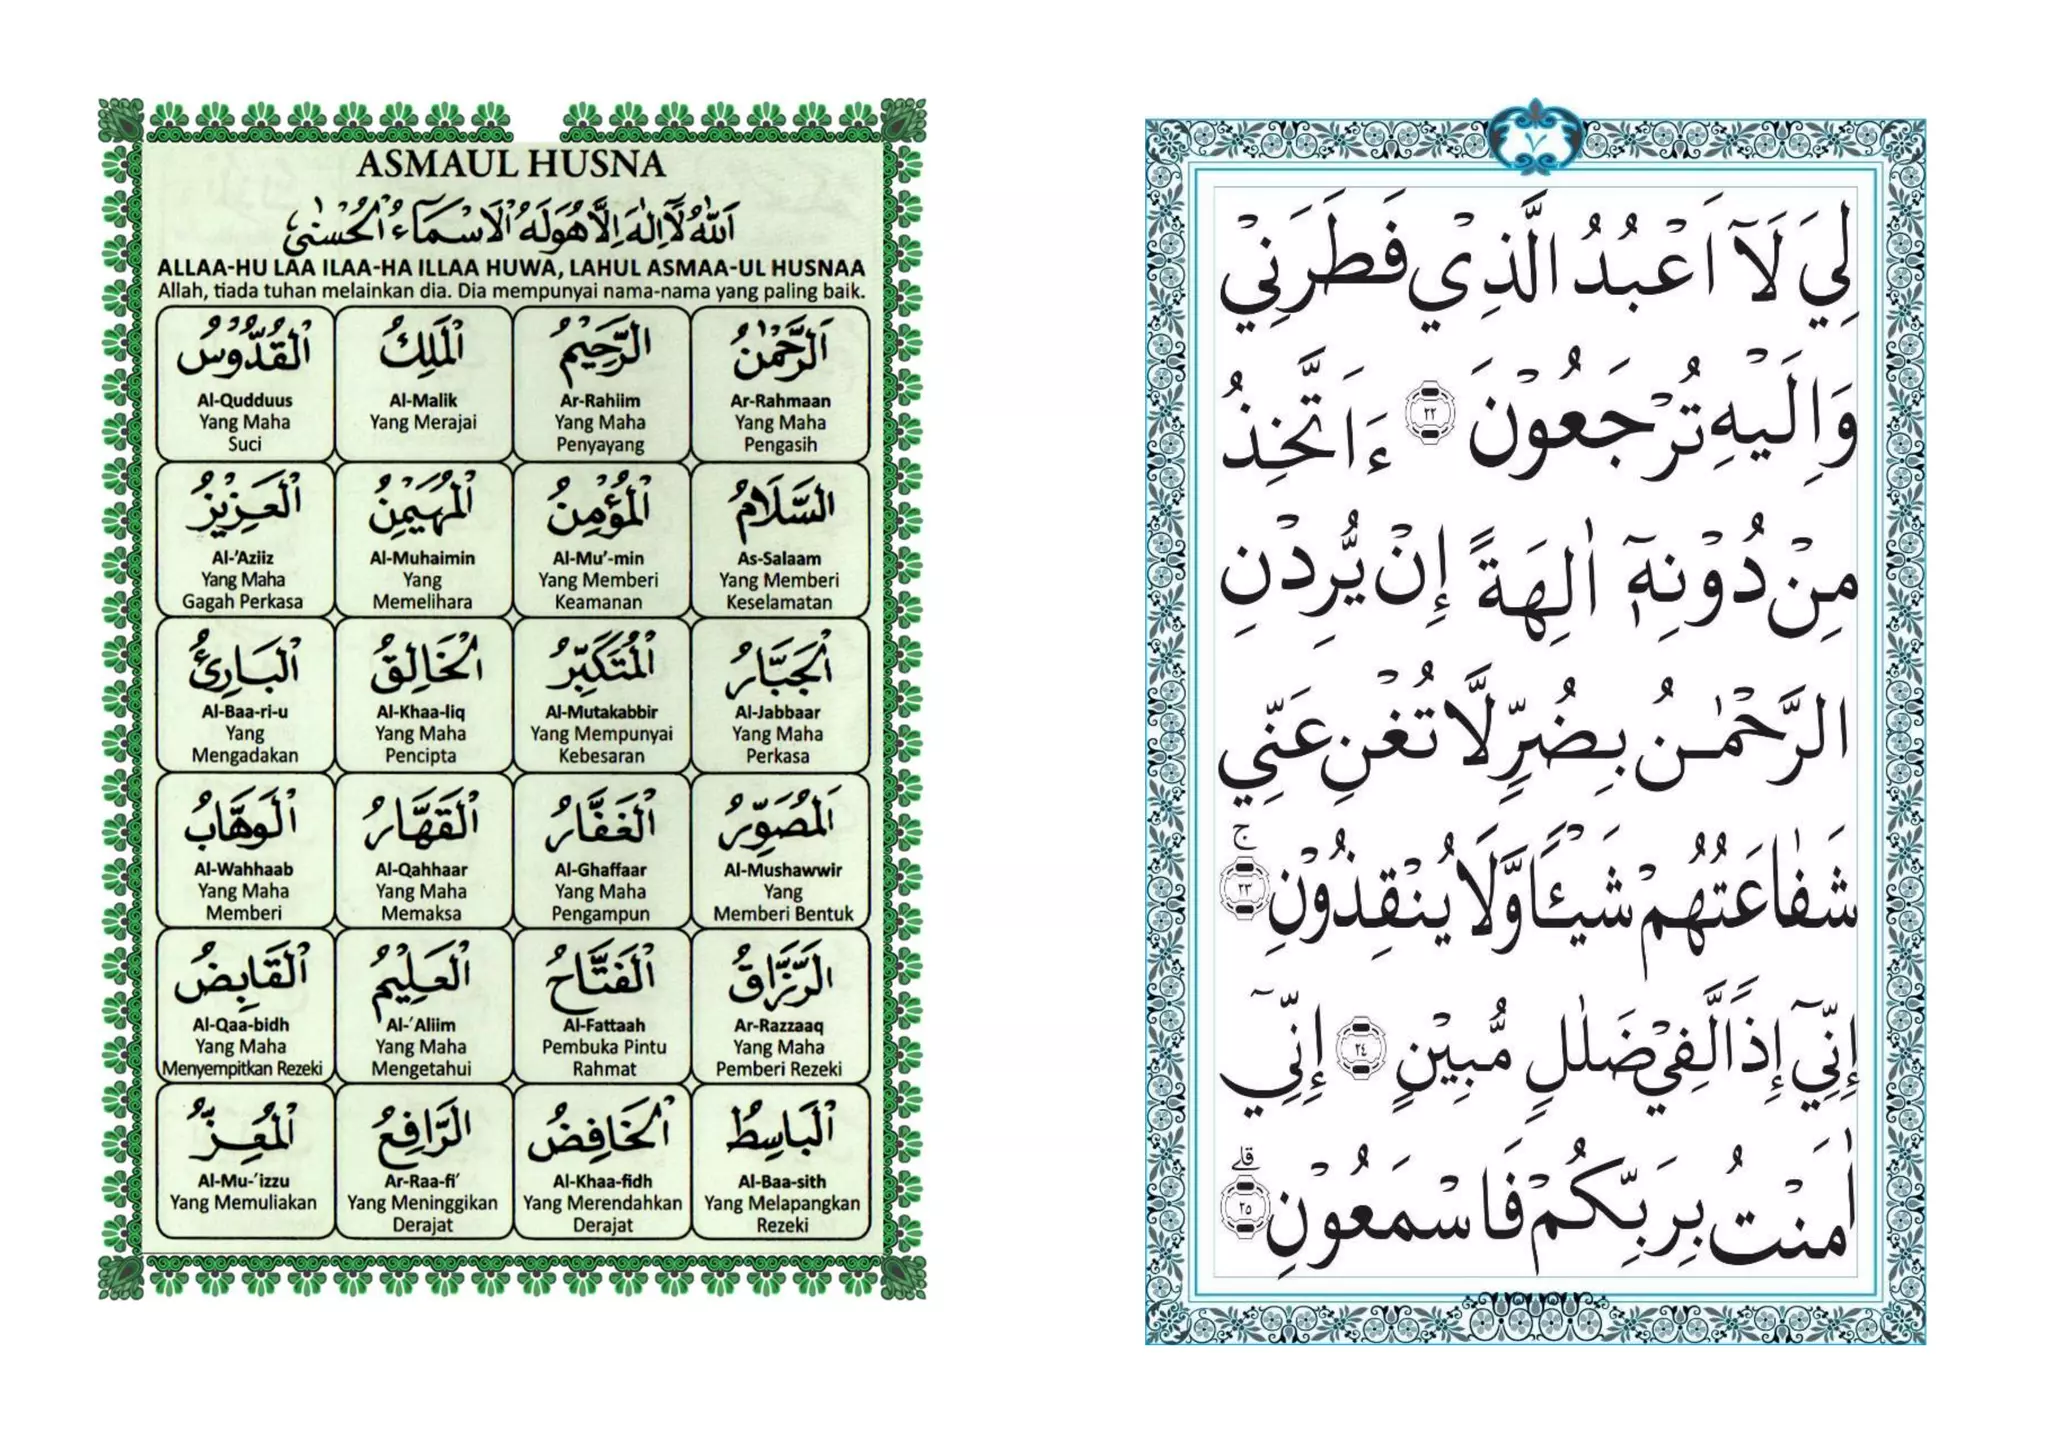 ASMAUL HUSNA
اَللّٰهُ لَآ اِلٰهَ اِلَّا هُوَ لَهُ الْاَسْمَآءُ الْحُسْنٰى
ALLAA-HU LAA ILAA-HA ILLAA HUWA, LAHUL ASMAA-UL HUSNAA
Allah, tiada tuhan melainkan dia. Dia mempunyai nama-nama yang paling baik.
اَلرَّحْمٰنُ
Ar-Rahmaan
Yang Maha
Pengasih
الرَّحِيْمُ
Ar-Rahiim
Yang Maha
Penyayang
الْمَلِكُ
Al-Malik
Yang Merajai
الْقُدُّوْسُ
Al-Qudduus
Yang Maha
Suci
السَّلَامُ
As-Salaam
Yang Memberi
Keselamatan
الْمُؤْمِنُ
Al-Mu’-min
Yang Memberi
Keamanan
الْمُهَيْمِنُ
Al-Muhaimin
Yang
Memelihara
الْعَزِيْزُ
Al-’Aziiz
Yang Maha
Gagah Perkasa
الْجَبَّارُ
Al-Jabbaar
Yang Maha
Perkasa
الْمُتَكَبِّرُ
Al-Mutakabbir
Yang Mempunyai
Kebesaran
الْخَالِقُ
Al-Khaa-liq
Yang Maha
Pencipta
الْبَارِئُ
Al-Baa-ri-u
Yang
Mengadakan
اَلْمُصَوِّرُ
Al-Mushawwir
Yang
Memberi Bentuk
الْغَفَّارُ
Al-Ghaffaar
Yang Maha
Pengampun
الْقَهَّارُ
Al-Qahhaar
Yang Maha
Memaksa
الْوَهَّابُ
Al-Wahhaab
Yang Maha
Memberi
الرَّزَّاقُ
Ar-Razzaaq
Yang Maha
Pemberi Rezeki
الْفَتَّاحُ
Al-Fattaah
Pembuka Pintu
Rahmat
الْعَلِيْمُ
Al-’Aliim
Yang Maha
Mengetahui
الْقَابِضُ
Al-Qaa-bidh
Yang Maha
Menyempitkan Rezeki
الْبَاسِطُ
Al-Baa-sith
Yang Melapangkan
Rezeki
الْخَافِضُ
Al-Khaa-fidh
Yang Merendahkan
Derajat
الرَّافِعُ
Ar-Raa-fi’
Yang Meninggikan
Derajat
الْمُعِزُّ
Al-Mu-’izzu
Yang Memuliakan
٧
لِيَ لَآ اَعْبُدُ الَّذِيْ فَطَرَنِيْ
وَاِلَيْهِ تُرْجَعُوْنَ ٢٢ ءَاَتَّخِذُ
مِنْ دُوْنِهٖٓ اٰلِهَةً اِنْ يُّرِدْنِ
الرَّحْمٰنُ بِضُرٍّ لَّا تُغْنِ عَنِّيْ
شَفَاعَتُهُمْ شَيْـًٔا وَّلَا يُنْقِذُوْنِ ۚ ٢٣
اِنِّيْٓ اِذًا لَّفِيْ ضَلٰلٍ مُّبِيْنٍ ٢٤ اِنِّيْٓ
اٰمَنْتُ بِرَبِّكُمْ فَاسْمَعُوْنِ ۗ ٢٥